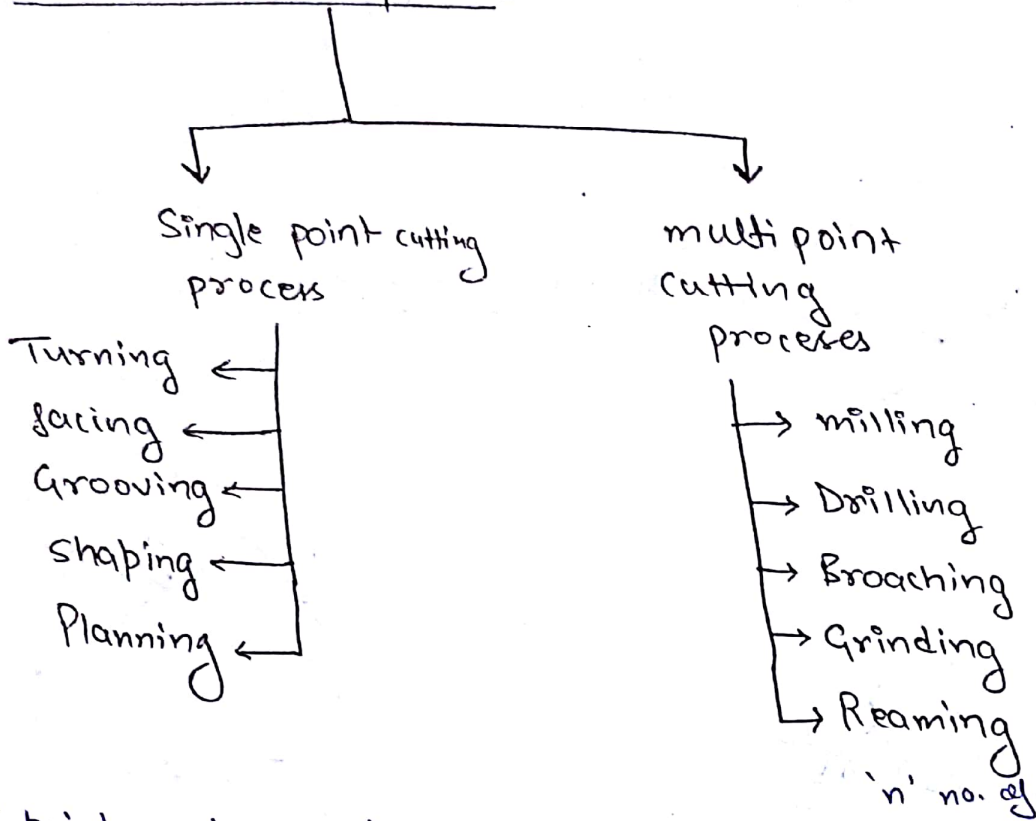 Single point cutting
process
Turning
facing
Grooving
shaping
Planning
multi point
cutting
proceses
milling
Drilling
Broaching
Grinding
Reaming
'n' no. of